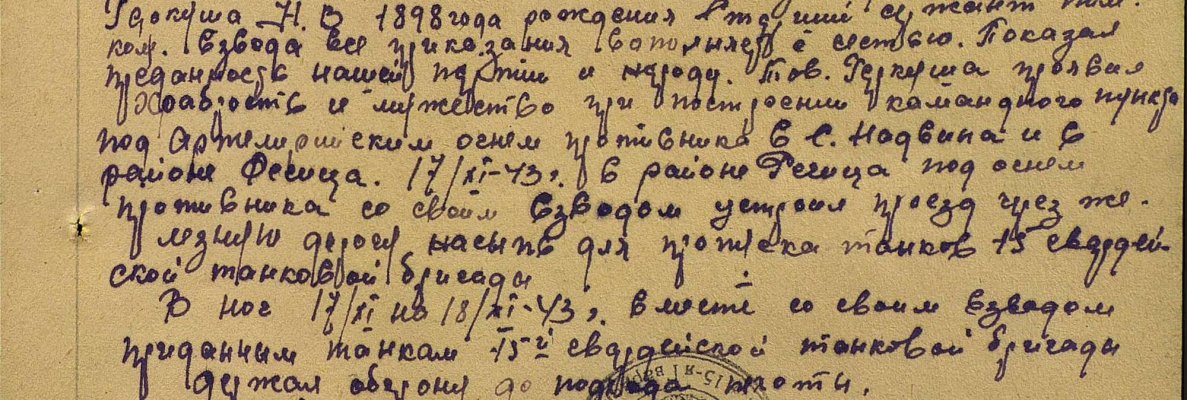 Геркуша Н. В 1898 года рождения сержант пом.
ком. взвода все приказания выполняет с честью. Показал
преданность нашей партии и народу. Тов. Геркуша проявил
Храбрость и мужество при построении камандного пункта
под Артелирийским огнем противника в с. Надвина и в
районе Речица. 17/XI-43г. в районе Речица под огнем
противника со своим взводом устроил проезд чрез же-
лезную дорогу насыпь для пропуска танков 15 гвардей-
ской танковой бригады
В ноч 17/XI на 18/XI-43г. вместе со своим взводом
приданным танкам 15й гвардейской танковой бригады
держал оборону до подхода пехоты.